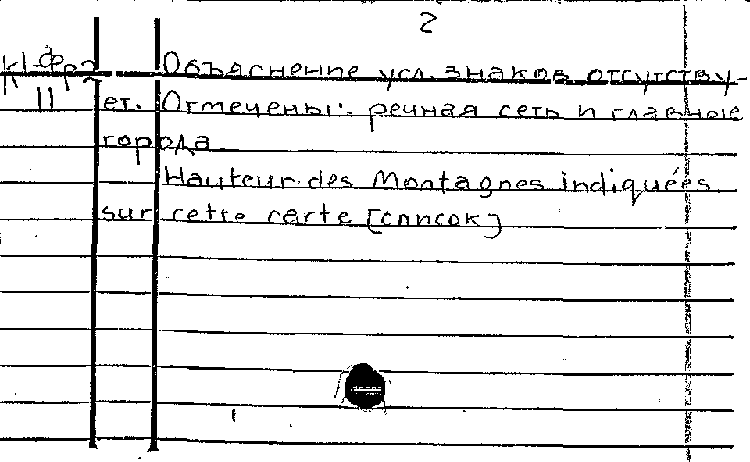 2
К1-Фр2 Объяснение усл. знаков отсутству-
11 ет. Отмечены: речная сеть и главные
города
Hauteur des Montagnes indiquées
sur cette carte [список]